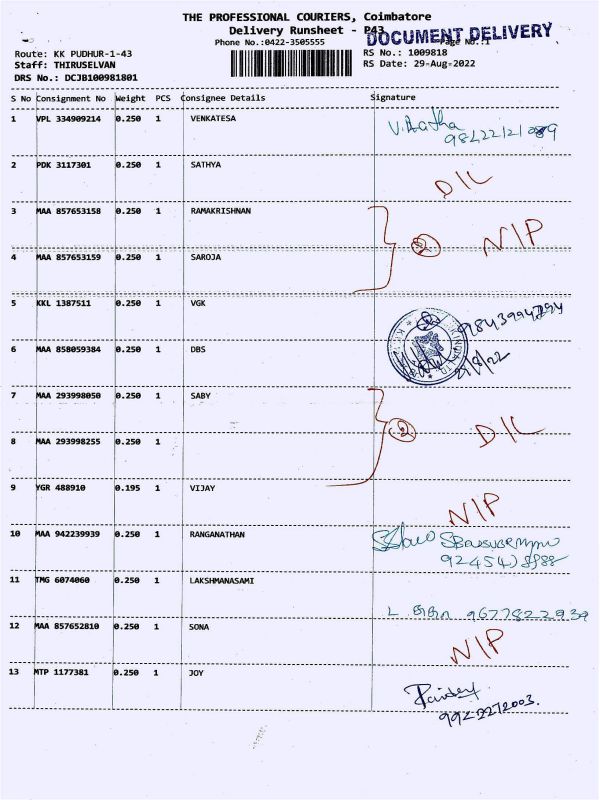 THE PROFESSIONAL COURIERS, Coimbatore
Delivery Runsheet - P43
DOCUMENT DELIVERY
Phone No.:0422-3505555 Page No.:1
Route: KK PUDHUR-1-43 RS No.: 1009818
Staff: THIRUSELVAN RS Date: 29-Aug-2022
DRS No.: DCJB100981801
S No Consignment No Weight PCS Consignee Details Signature
1 VPL 334909214 0.250 1 VENKATESA
2 PDK 3117301 0.250 1 SATHYA D/L
3 MAA 857653158 0.250 1 RAMAKRISHNAN
2 N/P
4 MAA 857653159 0.250 1 SAROJA
5 KKL 1387511 0.250 1 VGK
6 MAA 858059384 0.250 1 DBS
7 MAA 293998050 0.250 1 SABY
2 D/L
8 MAA 293998255 0.250 1
9 YGR 488910 0.195 1 VIJAY N/P
10 MAA 942239939 0.250 1 RANGANATHAN
11 TMG 6074060 0.250 1 LAKSHMANASAMI
L 9677822939
12 MAA 857652810 0.250 1 SONA N/P
13 MTP 1177381 0.250 1 JOY
9922272003.